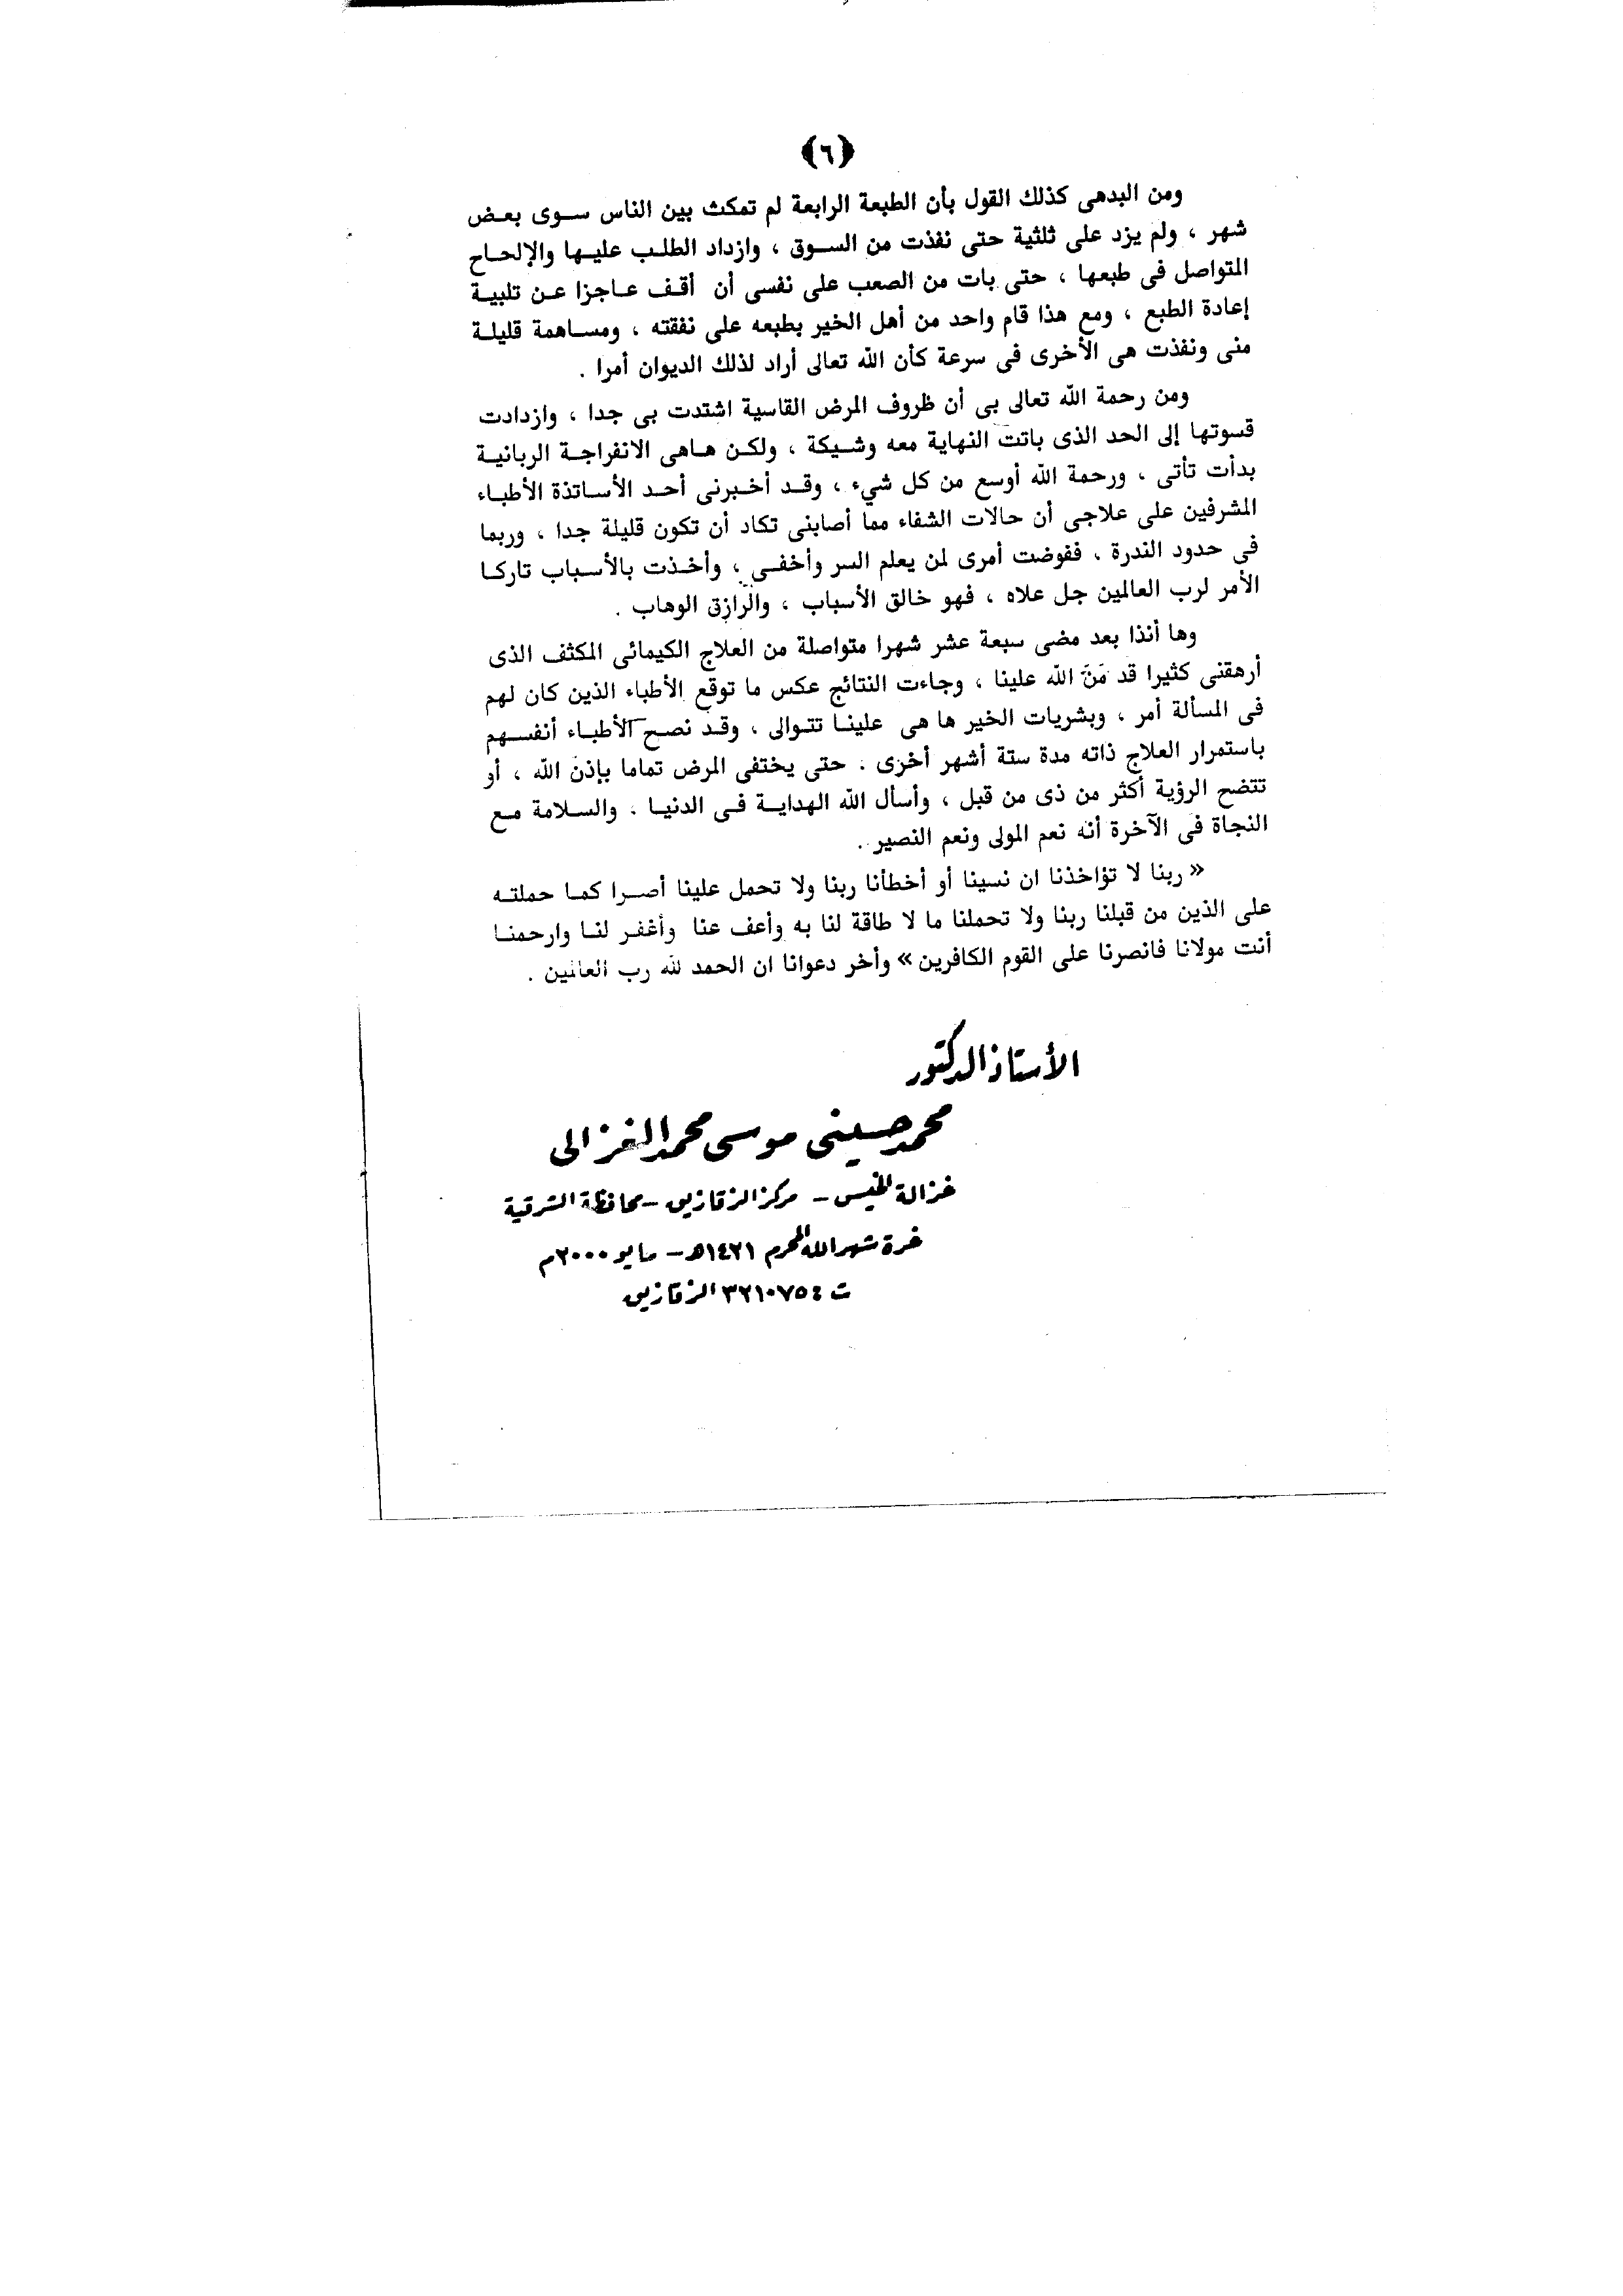 (٦)
ومن البدهى كذلك القول بأن الطبعة الرابعة لم تمكث بين الناس سوى بعض
شهر ، ولم يزد على ثلثية حتى نفذت من السوق ، وازداد الطلب عليها والإلحاح
المتواصل فى طبعها ، حتى بات من الصعب على نفسى أن أقف عاجزا عن تلبية
إعادة الطبع ، ومع هذا قام واحد من أهل الخير بطبعه على نفقته ، ومساهمة قليلة
منى ونفذت هى الأخرى فى سرعة كأن الله تعالى أراد لذلك الديوان أمرا .
ومن رحمة الله تعالى بى أن ظروف المرض القاسية اشتدت بى جدا ، وازدادت
قسوتها إلى الحد الذى باتت النهاية معه وشيكة ، ولكن هاهى الانفراجة الربانية
بدأت تأتى ، ورحمة الله أوسع من كل شيء ، وقد أخبرنى أحد الأساتذة الأطباء
المشرفين على علاجى أن حالات الشفاء مما أصابنى تكاد أن تكون قليلة جدا ، وربما
فى حدود الندرة ، ففوضت أمرى لمن يعلم السر وأخفى ، وأخذت بالأسباب تاركا
الأمر لرب العالمين جل علاه ، فهو خالق الأسباب ، والرازق الوهاب .
وها أنذا بعد مضى سبعة عشر شهرا متواصلة من العلاج الكيمائى المكثف الذى
أرهقنى كثيرا قد مَنَّ الله علينا ، وجاءت النتائج عكس ما توقع الأطباء الذين كان لهم
فى المسألة أمر ، وبشريات الخير ها هى علينا تتوالى ، وقد نصح الأطباء أنفسهم
باستمرار العلاج ذاته مدة ستة أشهر أخرى . حتى يختفى المرض تماما بإذن الله ، أو
تتضح الرؤية أكثر من ذى من قبل ، وأسأل الله الهداية فى الدنيا . والسلامة مع
النجاة فى الآخرة أنه نعم المولى ونعم النصير .
« ربنا لا تؤاخذنا ان نسينا أو أخطأنا ربنا ولا تحمل علينا أصرا كما حملته
على الذين من قبلنا ربنا ولا تحملنا ما لا طاقة لنا به وأعف عنا وأغفر لنا وارحمنا
أنت مولانا فانصرنا على القوم الكافرين» وأخر دعوانا ان الحمد لله رب العالمين .
الأستاذ الدكتور
محمد حسينى موسى محمد الغزالى
غزالة الخيس - مركز الزقازيق - محافظة الشرقية
غرة شهر الله المحرم ١٤٢١هـ - مايو ٢٠٠٠م
ت ٣٢١٠٧٥٤ الزقازيق